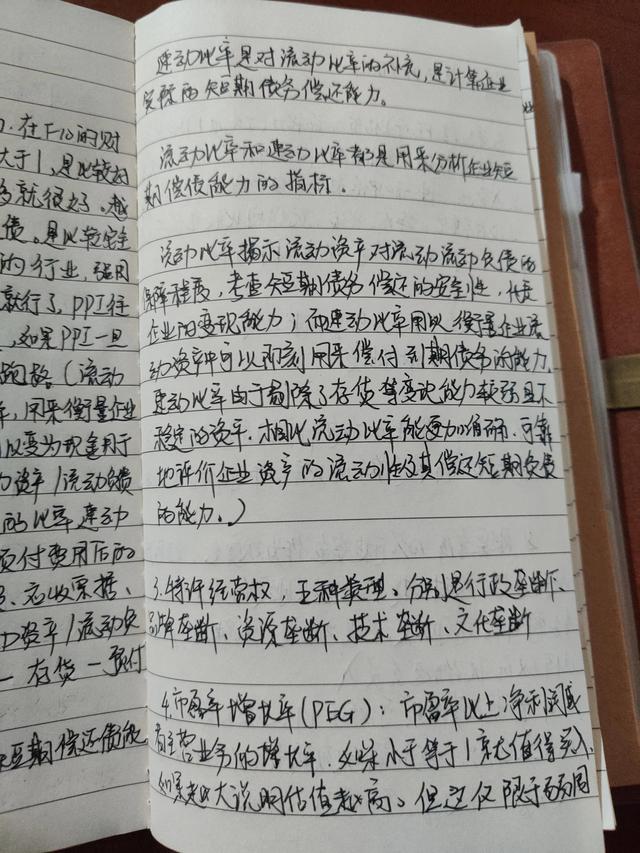 2. 在F10的财
大于1,是比较好
多就很好。越
债。是比较安全
的行业,强周
就行了,PPI往
,如果PPI一旦
(流动
率,用来衡量企业
以变为现金用于
动资产/流动负债
的比率。速动
预付费用后的
、应收票据、
动资产/流动负
-存货-预付
短期偿还债能
速动比率是对流动比率的补充,是计算企业
实际的短期债务偿还能力。
流动比率和速动比率都是用来分析企业短
期偿债能力的指标。
流动比率揭示流动资产对流动流动负债的
保障程度,考查短期债务偿还的安全性,代表
企业的变现能力;而速动比率用以衡量企业流
动资产中可以即刻用来偿付到期债务的能力。
速动比率由于剔除了存货等变现能力较弱且不
稳定的资产,相比流动比率能更加准确、可靠
地评价企业资产的流动性及其偿还短期负债
的能力。)
3.特许经营权,五种类型。分别是行政垄断、
品牌垄断、资源垄断、技术垄断、文化垄断
4.市盈率增长率(PEG):市盈率比上净利润或
者主营业务的增长率,必须小于等于1就值得买入,
如果越大说明估值越高。但这仅限于弱周